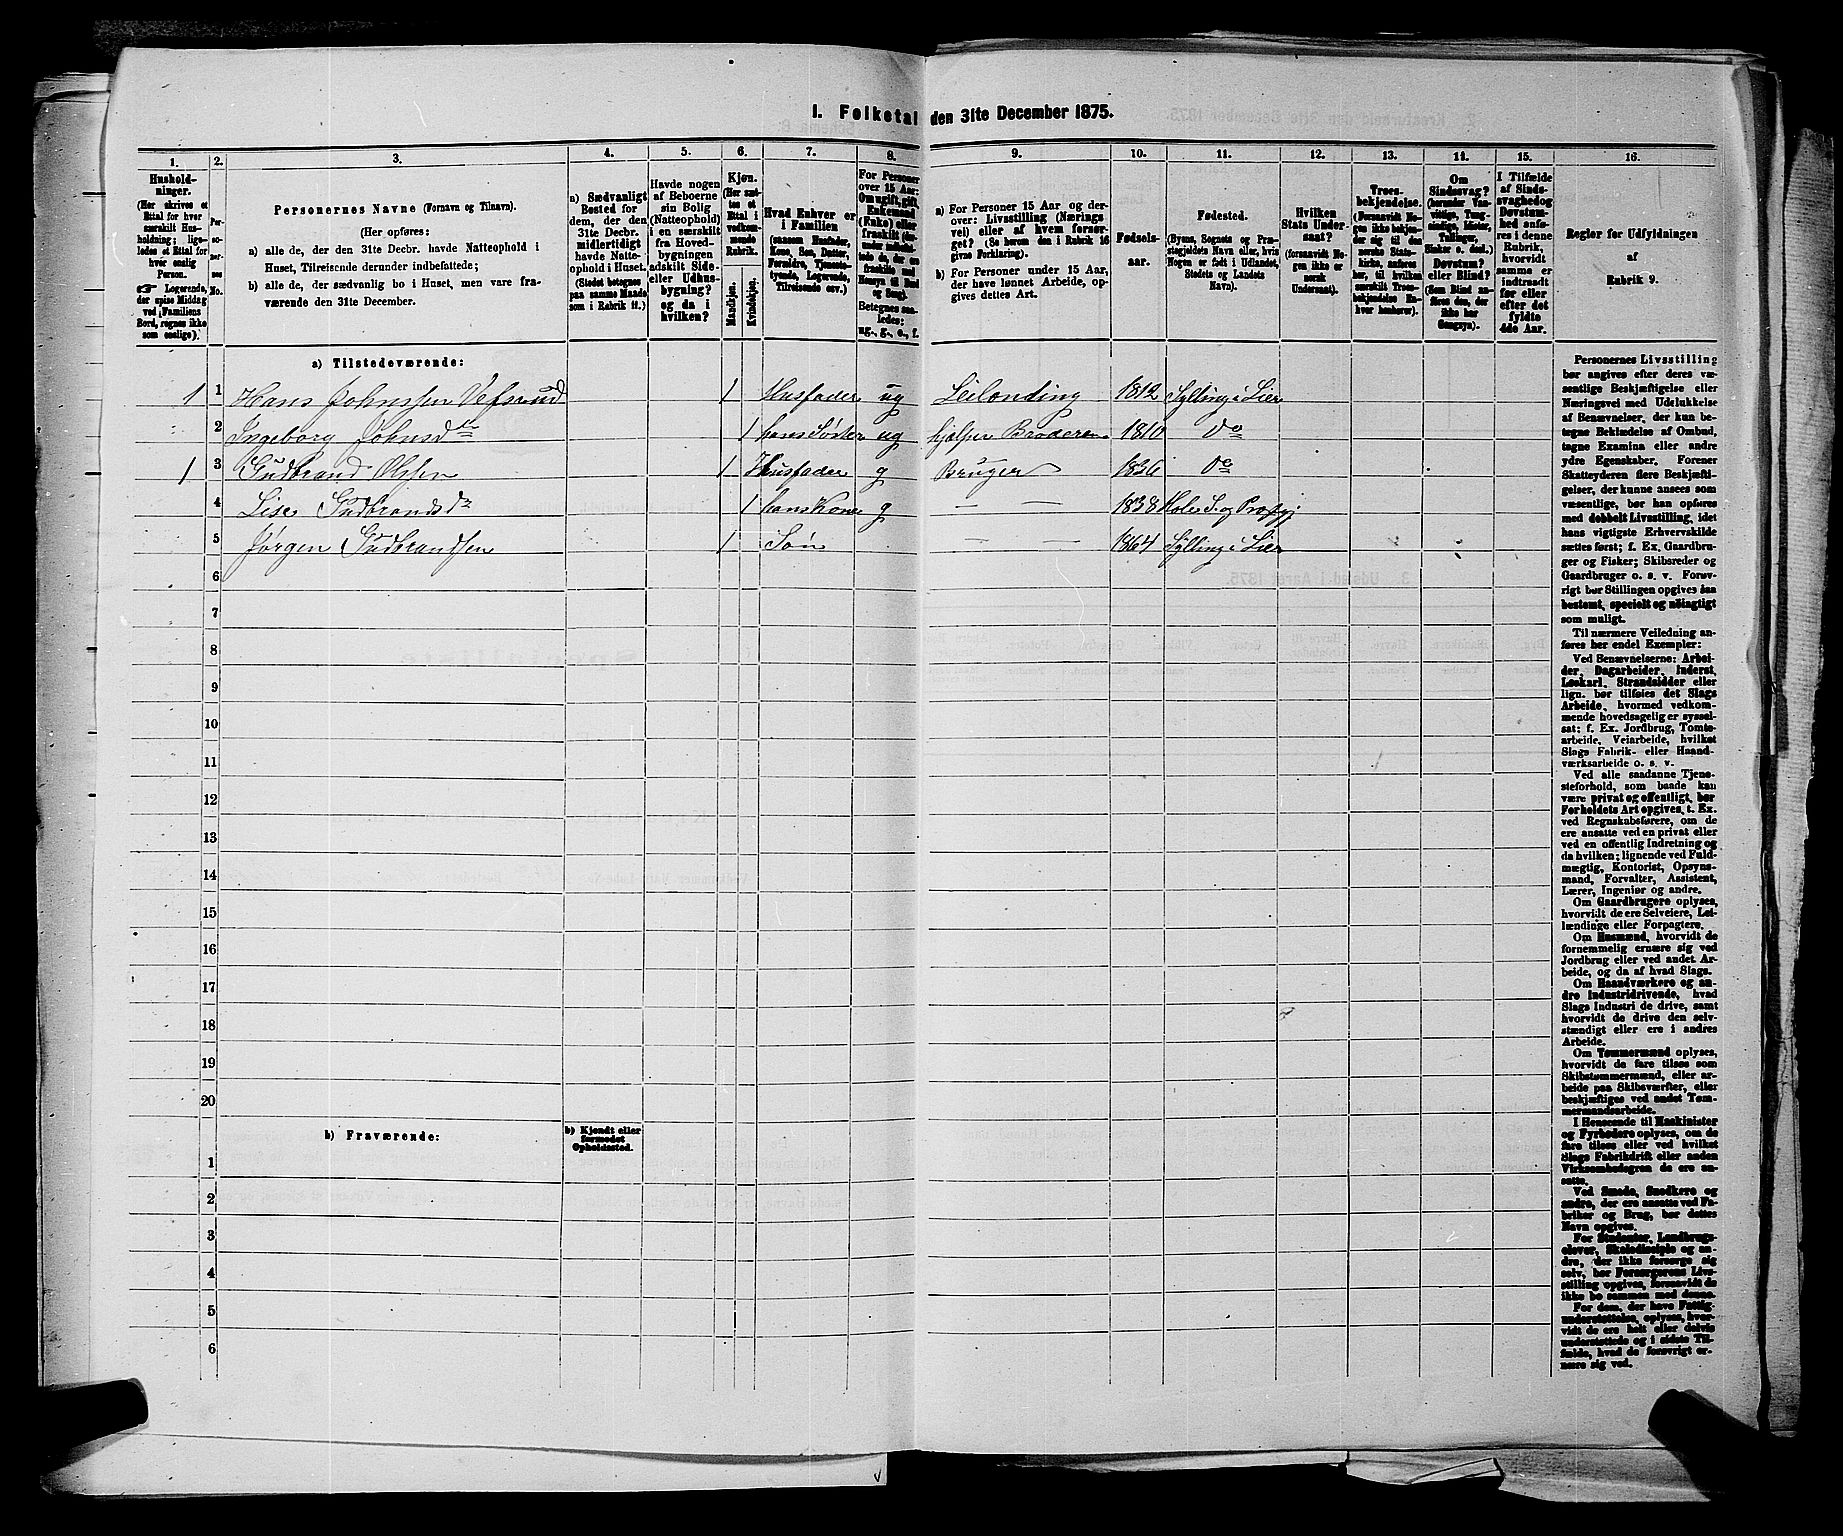 I. Folketal den 31te December 1875.
1.
2.
3.
4.
5.
6.
7.
8.
9.
10.
11.
12.
13.
14.
15.
16.
Hushold-
ninger.
(Her skrives et
Ettal for hver
særskilt Hus-
holdning; lige-
ledes et Ettal for
hver enslig
Person.
☞ Logerende,
der spise Middag
ved Familiens
Bord, regnes ikke
som enslige).
Per-
so-
ner-
nes
No.
Personernes Navne (Fornavn og Tilnavn).
(Her opføres:
a) alle de, der den 31te Decbr. havde Natteophold i
Huset, Tilreisende derunder indbefattede;
b) alle de, der sædvanlig bo i Huset, men vare fra-
værende den 31te December.
a) Sædvanligt
Bosted for
dem, der den
31te Decbr.
midlertidigt
havde Natte-
ophold i Huset.
(Stedet betegnes
paa samme Maade
som i Rubrik 11.)
Havde nogen
af Beboerne
sin Bolig
(Natteophold)
i en særskilt
fra Hoved-
bygningen
adskilt Side-
eller Udhus-
bygning?
og da i
hvilken?
Kjøn.
(Her sæt-
tes et
Ettal i
vedkom-
mende
Rubrik.
Mandkjøn.
Kvindekjøn.
Hvad Enhver er
i Familien
(saasom Husfader,
Kone, Søn, Datter,
Forældre, Tjeneste-
tyende, Logerende,
Tilreisende osv.)
For Personer
over 15 Aar:
Om ugift, gift,
Enkemand
(Enke) eller
fraskilt
Betegnes saa-
ledes:
ug., g., e., f.
a) For Personer 15 Aar og der-
over: Livsstilling (Nærings-
vei) eller af hvem forsør-
get? (Se herom den i Rubrik 16
givne Forklaring).
b) For Personer under 15 Aar,
der have lønnet Arbeide, op-
gives dettes Art.
Fødsels-
aar.
Fødested.
(Byens, Sognets og Præ-
stegjeldets Navn eller, hvis
Nogen er født i Udlandet,
Stedets og Landets
Navn).
Hvilken
Stats Under-
saat?
(forsaavidt No-
gen ikke er
norsk
Undersaat).
Troes-
bekjendelse.
(Forsaavidt No-
gen ikke bekjen-
der sig til den
norske Stats-
kirke, anføres
her, til hvilken
særskilt Troes-
bekjendelse En-
hver henhører).
Om
Sindssvag?
(herunder Van-
vittige, Tung-
sindige, Idioter,
Tullinger,
Sinker o. desl.)
Døvstum?
eller Blind?
(Som Blind an-
føres den, der
ikke har
Gangsyn).
I Tilfælde
af Sinds-
svaghed og
Døvstum-
hed anfø-
res i denne
Rubrik,
hvorvidt
samme er
indtraadt
før eller
efter det
fyldte
4de Aar.
Regler for Udfyldningen
af
Rubrik 9.
a) Tilstedeværende:
1 1 Hans Johnssen Vefsrud 1 Husfader ug Leilending 1812 Sylling i Lier
2 Ingeborg Johnsdtr 1 hans Søster ug hjælper Broderen 1810 Do
1 3 Gudbrand Olssen 1 Husfader g Bruger 1836 Do
4 Lise Gudbrandsdr 1 hans Kone g — — 1838 Hole S. og Præstgj
5 Jørgen Gudbrandsen 1 Søn — — 1864 Sylling i Lier
6
7
8
9
10
11
12
13
14
15
16
17
18
19
20
b) Fraværende:
b) Kjendt eller
formodet
Opholdssted.
1
2
3
4
5
6
Personernes Livsstilling
bør angives efter deres væ-
sentlige Beskjæftigelse eller
Næringsvei med Udelukkelse
af Benævnelser, der kun be-
tegne Beklædelse af Ombud,
tagne Examina eller andre
ydre Egenskaber. Forener
Skatteyderen flere Beskjæfti-
gelser, der kunne ansees som
væsentlige, bør han opføres
med dobbelt Livsstilling, idet
hans vigtigste Erhvervskilde
sættes først; f. Ex. Gaardbru-
ger og Fisker; Skibsreder og
Gaardbruger o. s. v. Forøv-
rigt bør Stillingen opgives saa
bestemt, specielt og nöiagtigt
som muligt.
Til nærmere Veiledning an-
føres her endel Exempler:
Ved Benævnelserne: Arbei-
der, Dagarbeider, Inderst,
Løskarl, Strandsidder eller
lign. bør tilføies det Slags
Arbeide, hvormed vedkom-
mende hovedsagelig er syssel-
sat: f. Ex. Jordbrug, Tomte-
arbeide, Veiarbeide, hvilket
Slags Fabrik- eller Haand-
værksarbeide o. s. v.
Ved alle saadanne Tjene-
steforhold, som baade kan
være privat og offentligt, bør
Forholdets Art opgives, t. Ex.
ved Regnskabsførere, om de
ere ansatte ved en privat eller
ved en offentlig Indretning og
da hvilken; lignende ved Fuld-
mægtig, Kontorist, Opsyns-
mand, Forvalter, Assistent,
Lærer, Ingeniør og andre.
Om Gaardbrugere oplyses,
hvorvidt de ere Selveiere, Lei-
lændinge eller Forpagtere.
Om Husmænd, hvorvidt de
fornemmelig ernære sig ved
Jordbrug eller ved andet Ar-
beide, og da af hvad Slags.
Om Haandværkere og an-
dre Industridrivende, hvad
Slags Industri de drive, samt
hvorvidt de drive den selv-
stændigt eller ere i andres
Arbeide.
Om Tømmermænd oplyses,
hvorvidt de fare tilsøs som
Skibstømmermænd, eller ar-
beide paa Skibsværfter, eller
beskjæftiges ved andet Tøm-
mermandsarbeide.
I Henseende til Maskinister
og Fyrbødere oplyses, om de
fare tilsøs eller ved hvilket
Slags Fabrikdrift eller anden
Virksomhedsgren de ere an-
satte.
Ved Smede, Snedkere og
andre, der ere ansatte ved Fa-
briker og Brug, bør dettes
Navn opgives.
For Studenter, Landbrugs-
elever, Skoledisciple og an-
dre, der ikke forsørge sig
selv, bør Forsørgerens Livs-
stilling opgives, forsaavidt de
ikke bo sammen med denne.
For dem, der have Fattig-
understøttelse, oplyses, hvor-
vidt de ere helt eller delvis
understøttede og i sidste Til-
fælde, hvad de forøvrigt er-
nære sig ved.